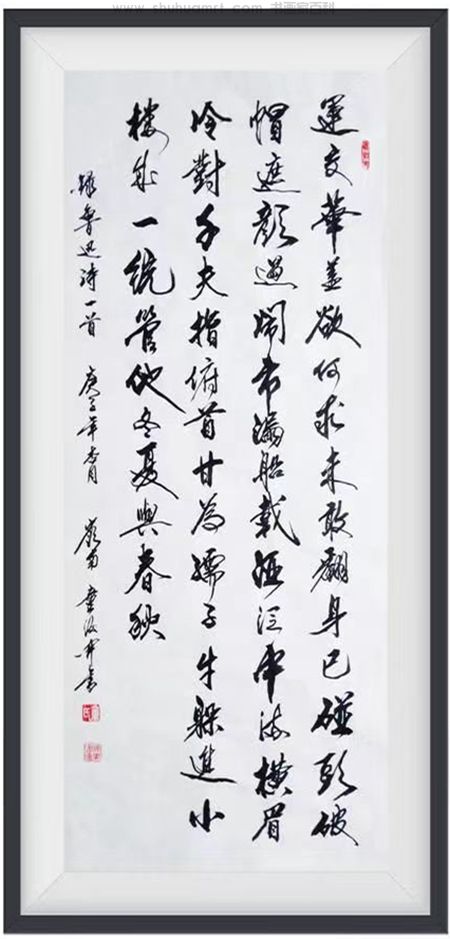 www.shuhuamst.com 书画家百科
運交華蓋欲何求未敢翻身已碰頭破
帽遮顏過鬧市漏船載酒泛中流橫眉
冷對千夫指俯首甘為孺子牛躲進小
樓成一統管他冬夏與春秋
錄魯迅詩一首 庚子年 嶺南